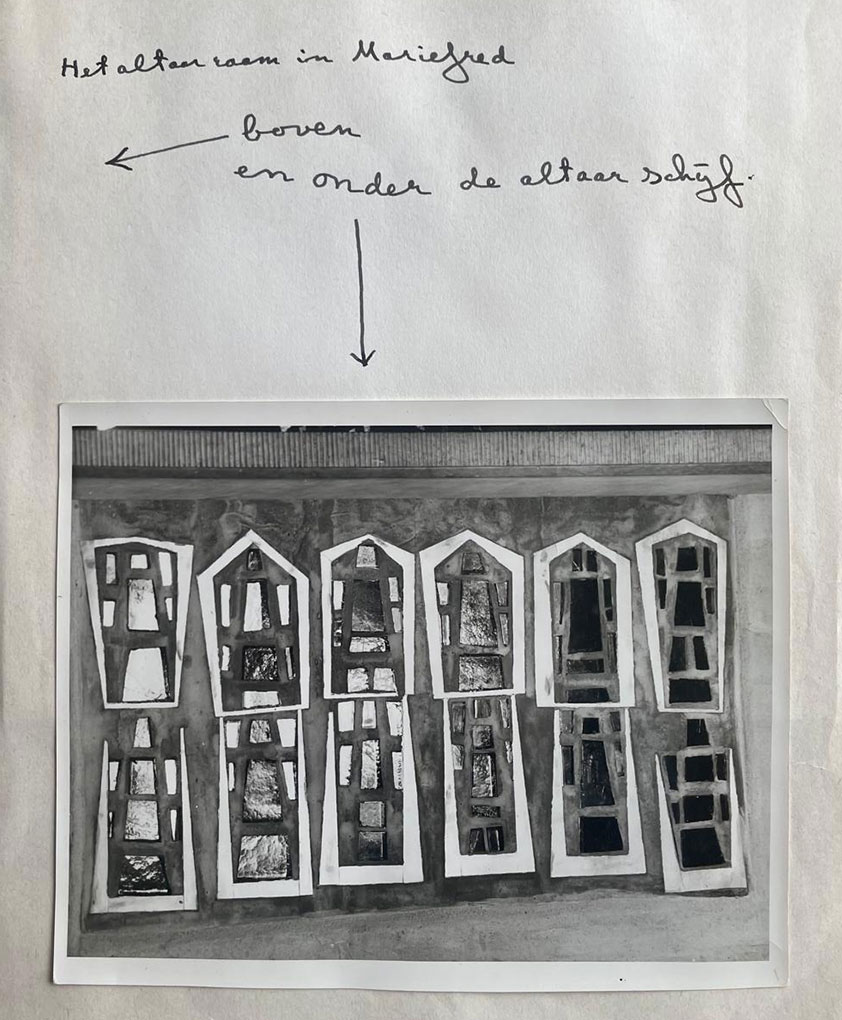 Het altaar raam in Mariefred
boven
en onder de altaar schijf.